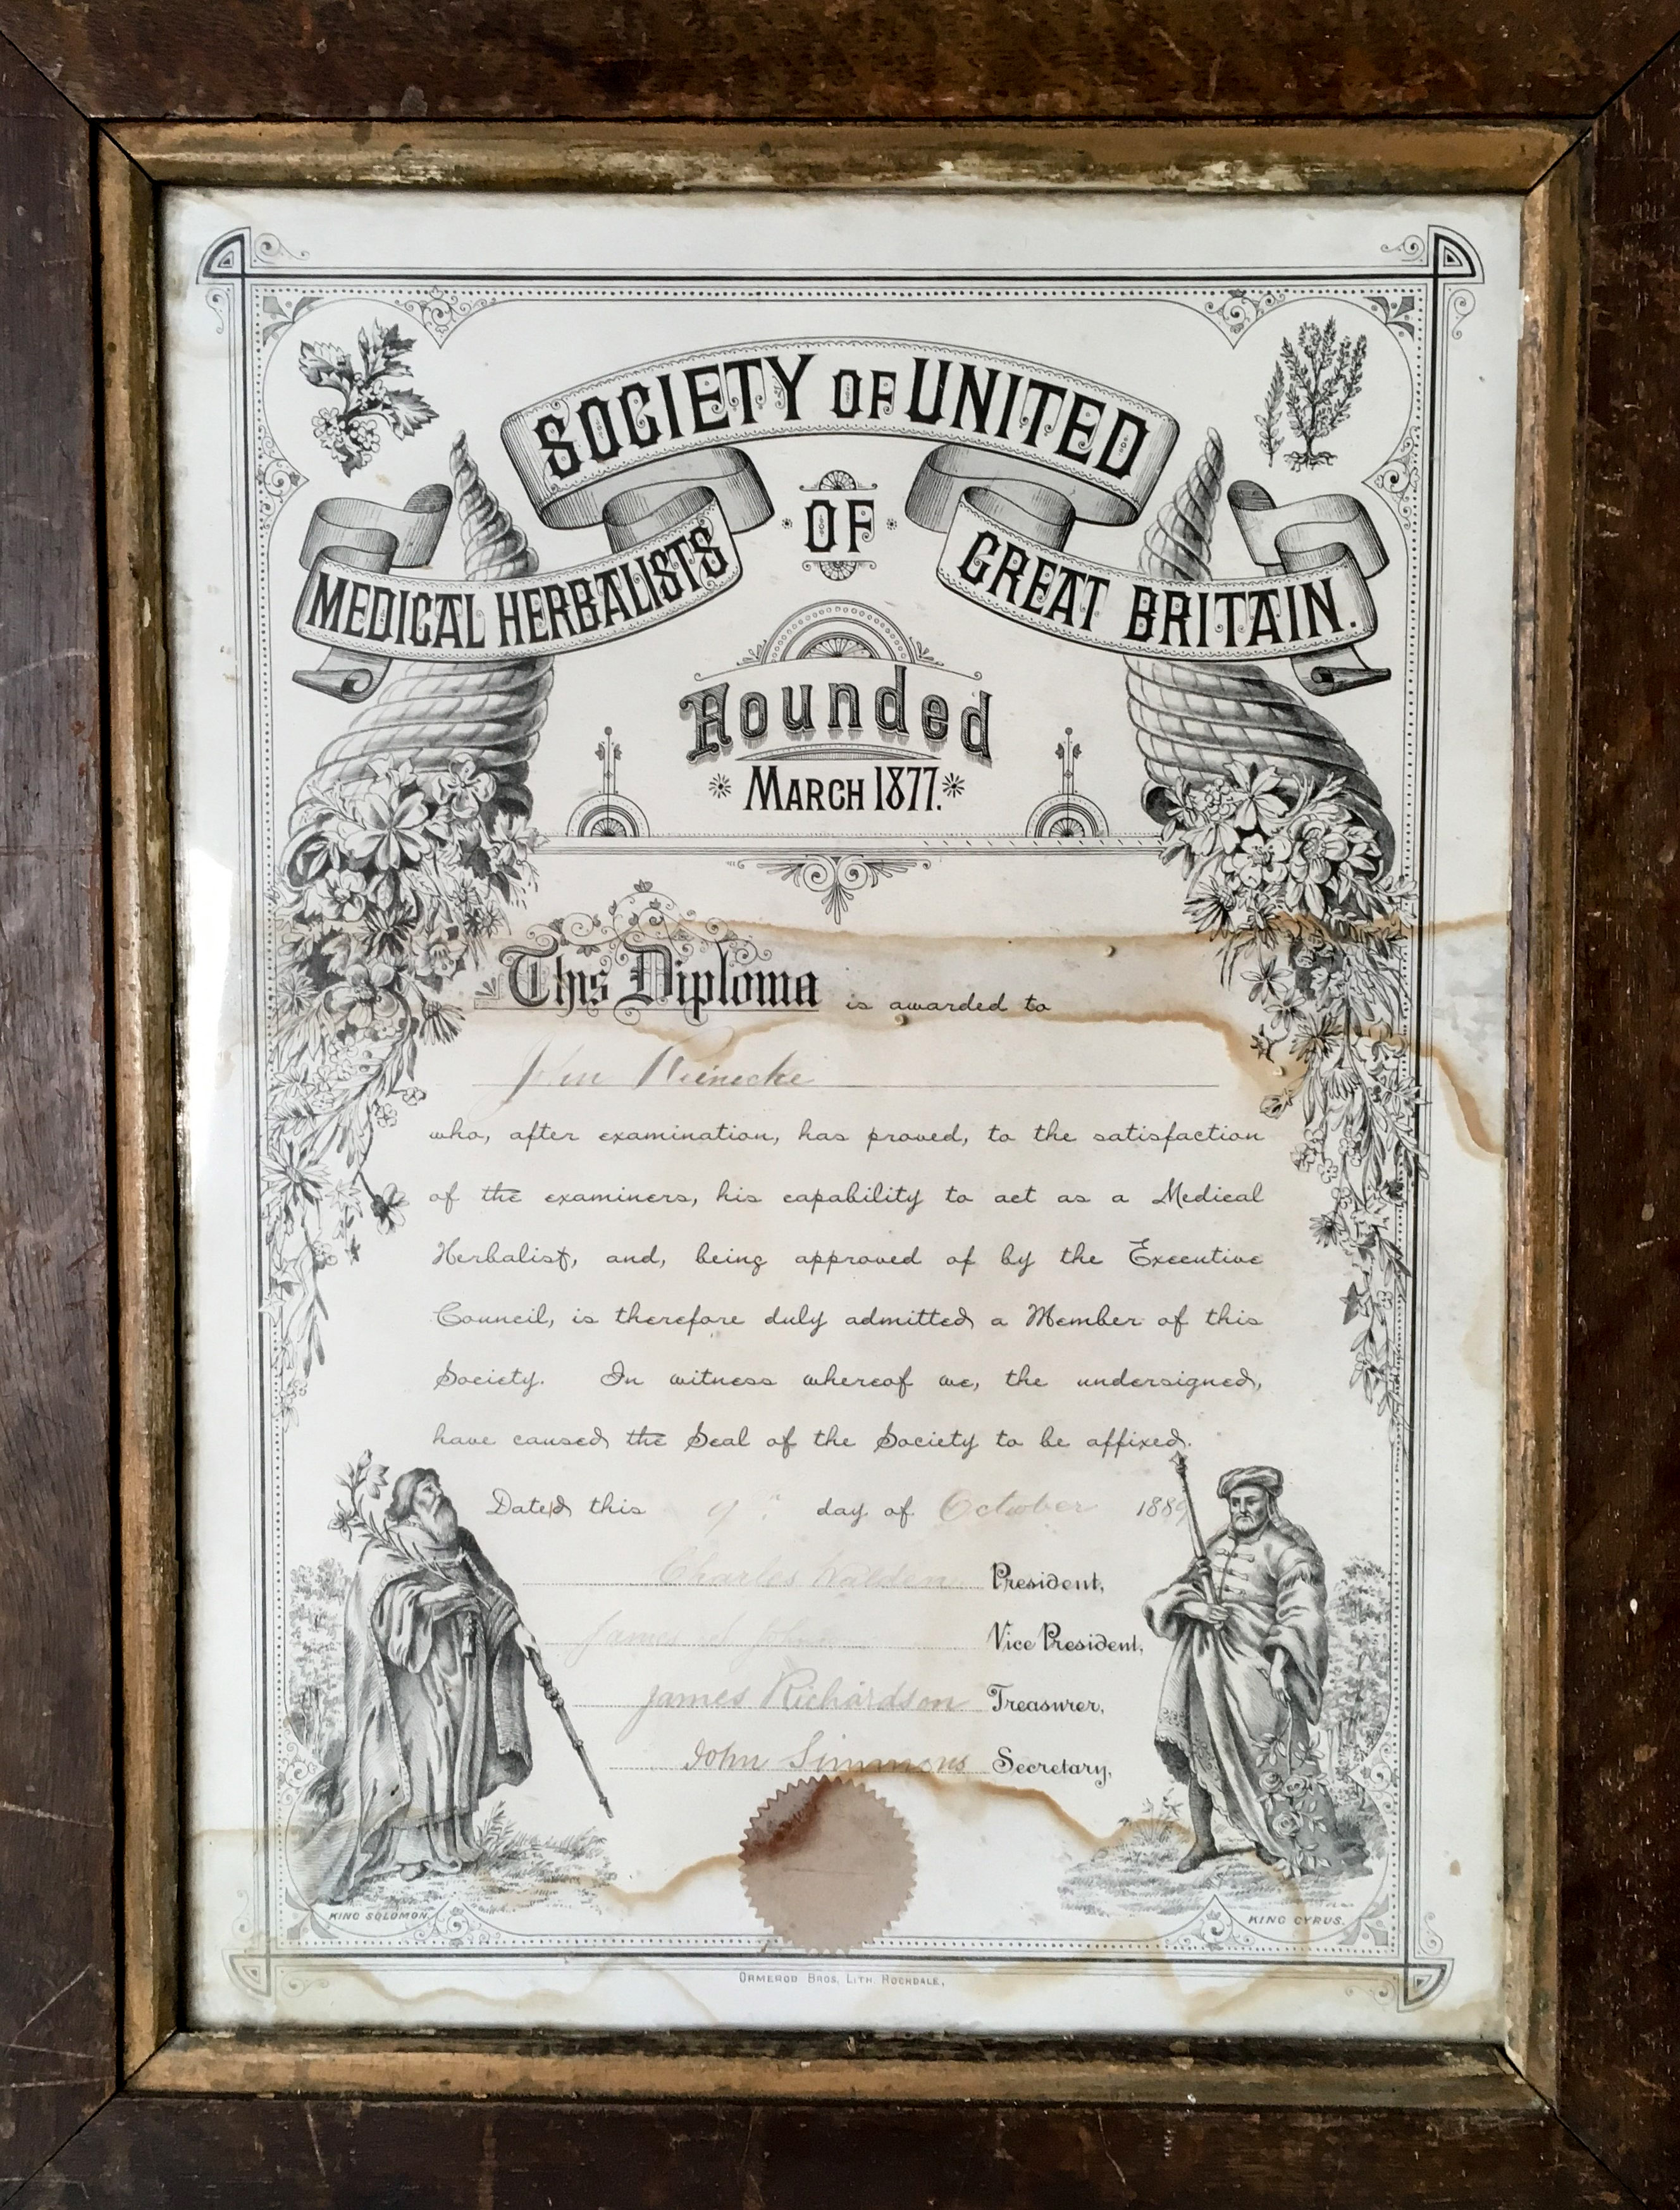 SOCIETY OF UNITED
MEDICAL HERBALISTS
OF
GREAT BRITAIN.
Founded
MARCH 1877.
This Diploma is awarded to
John Reinecke
who, after examination, has proved, to the satisfaction
of the examiners, his capability to act as a Medical
Herbalist, and, being approved of by the Executive
Council, is therefore duly admitted a Member of this
Society. In witness whereof we, the undersigned,
have caused the Seal of the Society to be affixed.
Dated this day of October 1889
Charles Walden President,
James Vice President,
James Richardson Treasurer,
John Simmons Secretary,
KING SOLOMON.
KING CYRUS.
ORMEROD BROS, LITH. ROCHDALE,